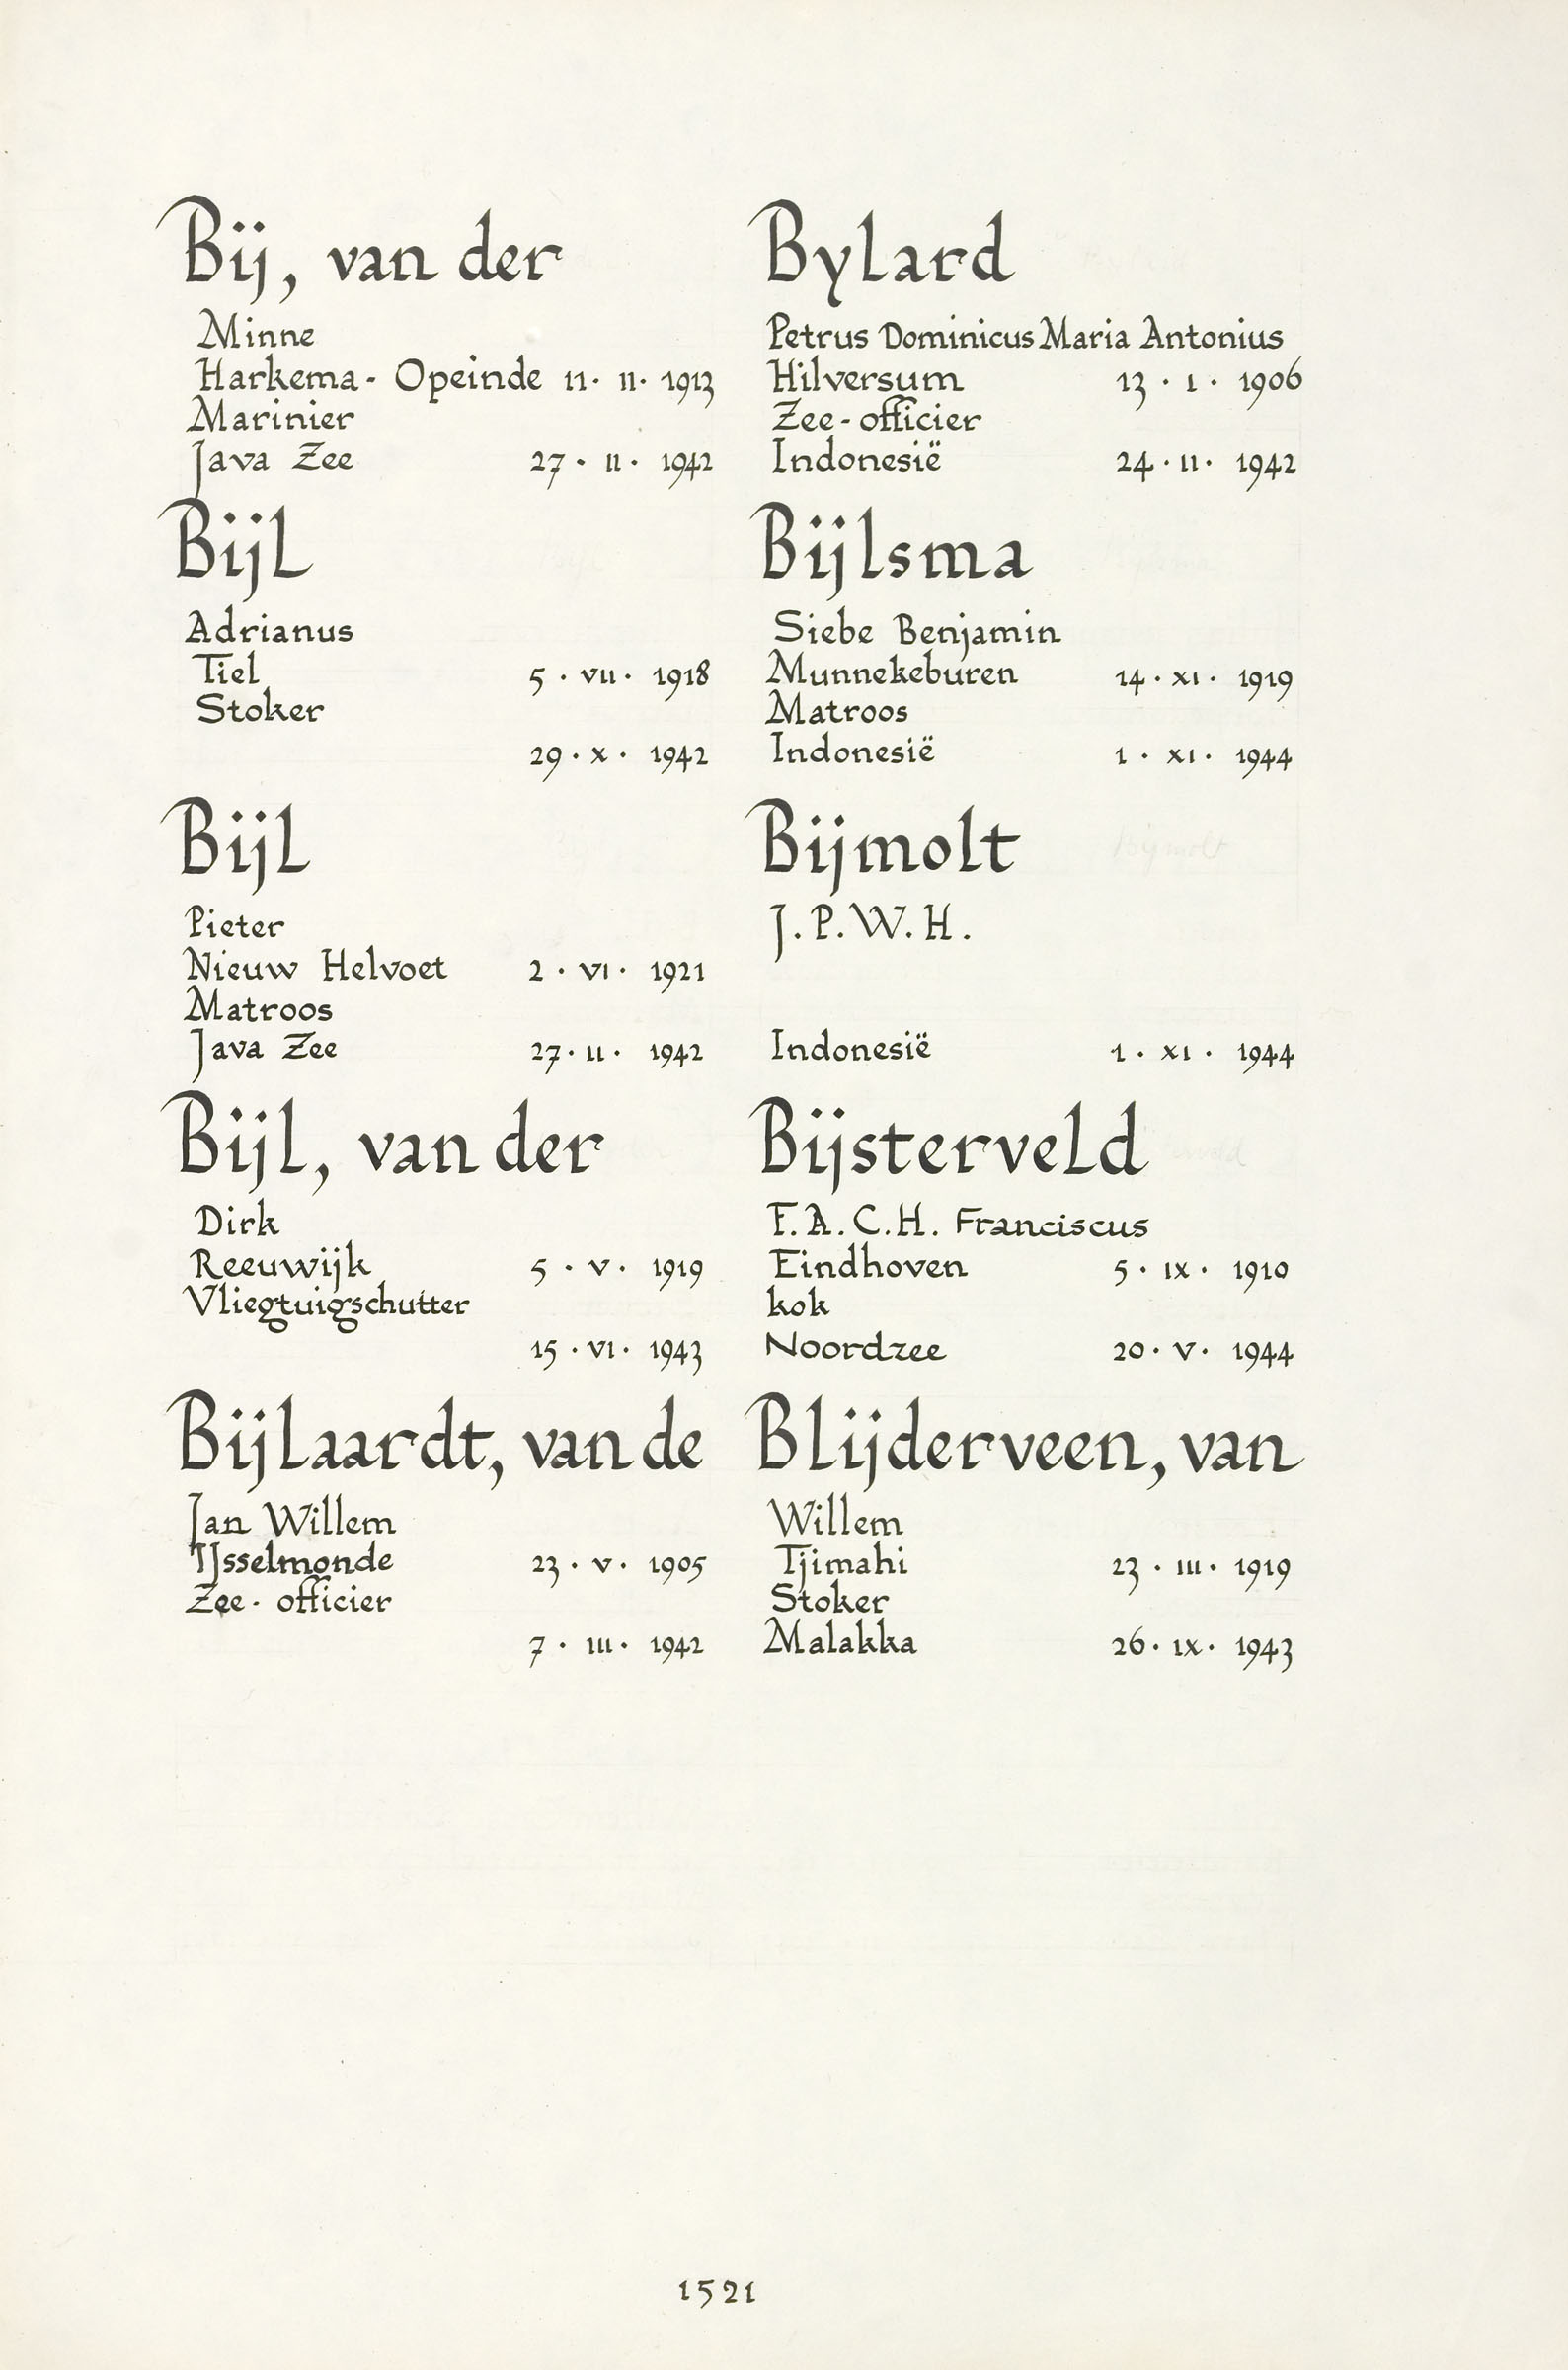 Bij, van der
Minne
Harkema - Opeinde 11 · II · 1913
Marinier
Java Zee 27 · II · 1942
Bijl
Adrianus
Tiel 5 · VII · 1918
Stoker
29 · X · 1942
Bijl
Pieter
Nieuw Helvoet 2 · VI · 1921
Matroos
Java Zee 27 · II · 1942
Bijl, van der
Dirk
Reeuwijk 5 · V · 1919
Vliegtuigschutter
15 · VI · 1943
Bijlaardt, van de
Jan Willem
IJsselmonde 23 · V · 1905
Zee - officier
7 · III · 1942
Bylard
Petrus Dominicus Maria Antonius
Hilversum 13 · I · 1906
Zee - officier
Indonesië 24 · II · 1942
Bijlsma
Siebe Benjamin
Munnekeburen 14 · XI · 1919
Matroos
Indonesië 1 · XI · 1944
Bijmolt
J. P. W. H.
Indonesië 1 · XI · 1944
Bijsterveld
F. A. C. H. Franciscus
Eindhoven 5 · IX · 1910
kok
Noordzee 20 · V · 1944
Blijderveen, van
Willem
Tjimahi 23 · III · 1919
Stoker
Malakka 26 · IX · 1943
1521